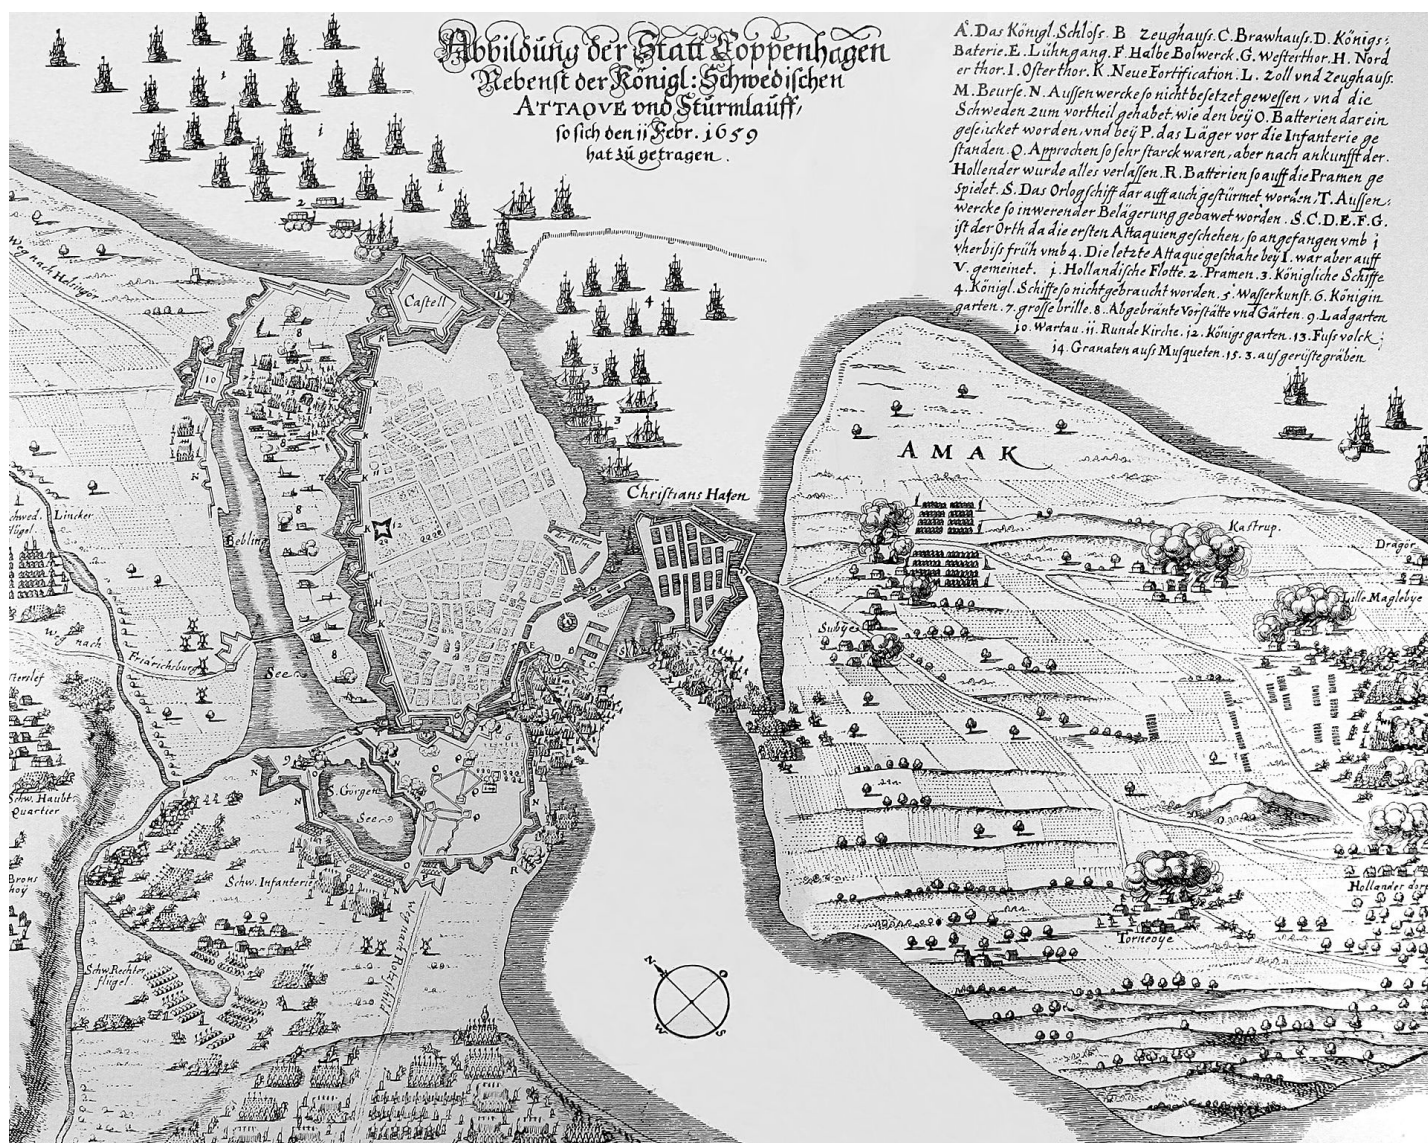 Abbildung der Statt Coppenhagen
Nebenst der Königl: Schwedischen
ATTAQVE vnd Sturmlauff,
so sich den 11 Febr. 1659
hat zu getragen.
A. Das Königl. Schloss. B Zeughauss. C. Brawhauss. D. Königs:
Baterie. E. Lühngang. F. Halbe Bolwerck. G. Westerthor. H. Nord
er thor. I. Osterthor. K. Neue Fortification. L. Zoll vnd Zeughauss.
M. Beurse. N. Aussenwercke so nicht besetzet gewessen, vnd die
Schweden zum vortheil gehabet, wie den beÿ O. Batterien darein
gerücket worden, vnd beÿ P. das Läger vor die Infanterie ge
standen. Q. Approchen so sehr starck waren, aber nach ankunfft der.
Hollender wurde alles verlassen. R. Batterien so auff die Pramen ge
spielet. S. Das Orlogschiff darauff auch gestürmet worden. T. Aussen,
wercke so in werender Belägerung gebawet worden. S. C. D. E. F. G.
ist der Orth da die ersten Attaquien geschehen, so angefangen vmb 1
vher biss früh vmb 4. Die letzte Attaque geschahe beÿ I. war aber auff
V. gemeinet. 1. Hollandische Flotte. 2. Pramen. 3. Königliche Schiffe
4. Königl. Schiffe so nicht gebraucht worden. 5. Wasserkunst. 6. Königin
garten. 7. grosse brille. 8. Abgebrante Vorstätte vnd Gärten. 9. Ladgarten
10. Wartau. 11. Runde Kirche. 12. Königs garten. 13. Fuss volck;
14. Granaten auss Musqueten. 15. 3. aus gerüste gräben
Weg nach Helsingör
Castell
10
AMAK
Christians Hafen
Kastrup.
Dragör
Lille Maglebÿe
Subÿe
Lincker
flügel.
Bebling
See
Friderichsburg
Weg nach
S. Görgen
See
Schw. Haubt
Quartier
Schw. Infanterie
Schw. Rechter
flügel
Weg nach Rotschild
Torneoÿe
Hollander dorp
N
O
W
S